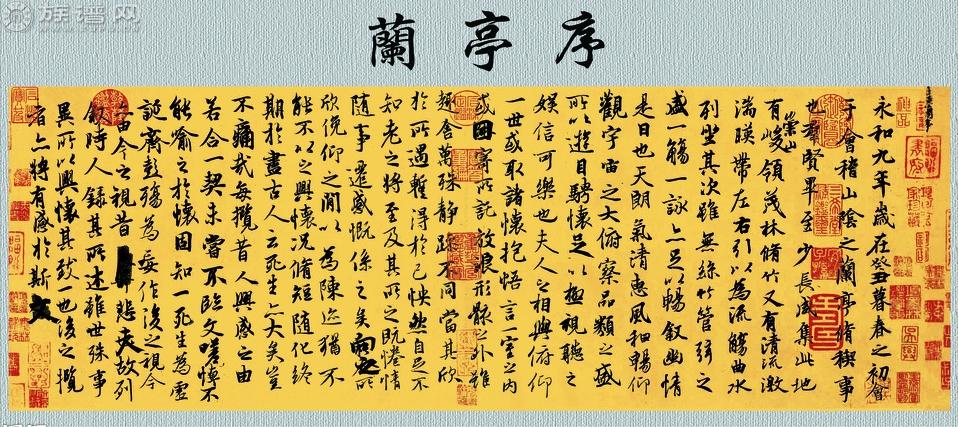 族谱网
蘭亭序
永和九年歲在癸丑暮春之初會
于會稽山陰之蘭亭脩稧事
也羣賢畢至少長咸集此地
有崇山峻領茂林脩竹又有清流激
湍暎帶左右引以為流觴曲水
列坐其次雖無絲竹管弦之
盛一觴一詠亦足以暢敘幽情
是日也天朗氣清惠風和暢仰
觀宇宙之大俯察品類之盛
所以遊目騁懷足以極視聽之
娛信可樂也夫人之相與俯仰
一世或取諸懷抱悟言一室之內
或因寄所託放浪形骸之外雖
趣舍萬殊靜躁不同當其欣
於所遇蹔得於己怏然自足不
知老之將至及其所之既惓情
隨事遷感慨係之矣向之所
欣俛仰之閒以為陳迹猶不
能不以之興懷況脩短隨化終
期於盡古人云死生亦大矣豈
不痛哉每攬昔人興感之由
若合一契未嘗不臨文嗟悼不
能喻之於懷固知一死生為虛
誕齊彭殤為妄作後之視今
亦由今之視昔悲夫故列
敘時人錄其所述雖世殊事
異所以興懷其致一也後之攬
者亦將有感於斯文